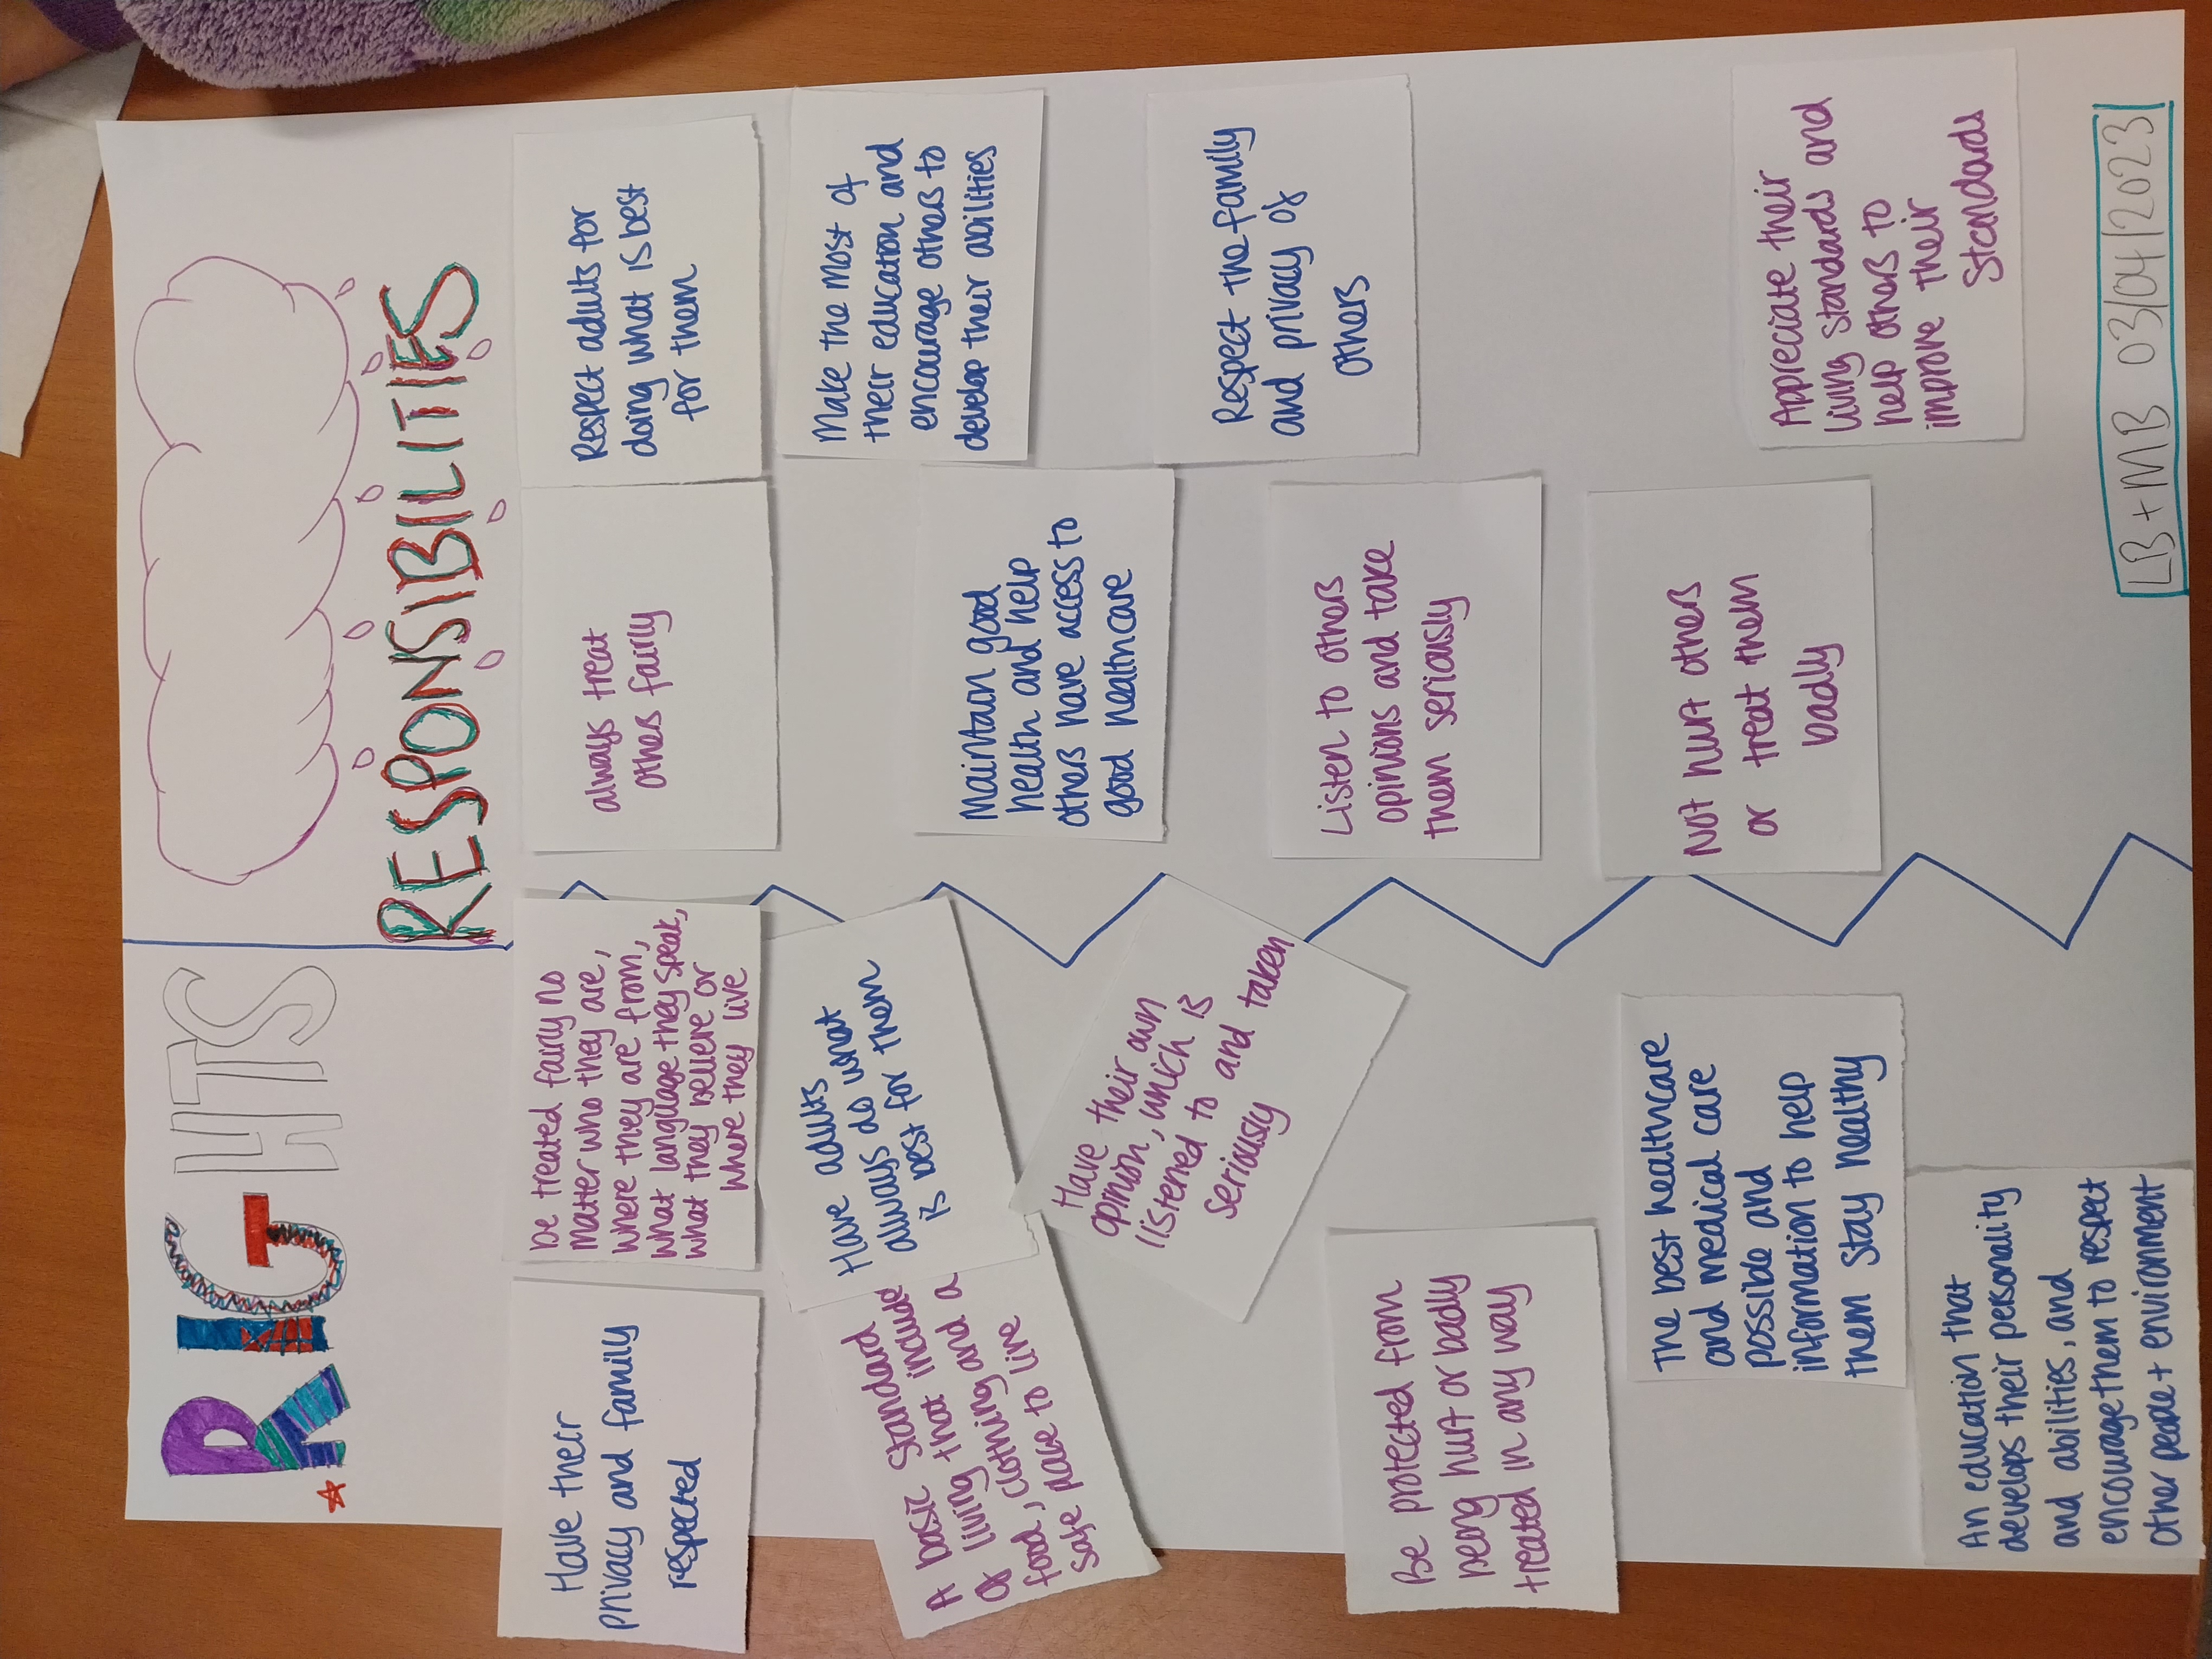 RIGHTS
Have their
privacy and family
respected
be treated fairly no
matter who they are,
where they are from,
what language they speak,
what they believe or
where they live
A basic standard
of living that include
food, clothing and a
safe place to live
Have adults
always do what
is best for them
Have their own
opinion, which is
listened to and taken
seriously
Be protected from
being hurt or badly
treated in any way
The best healthcare
and medical care
possible and
information to help
them stay healthy
An education that
develops their personality
and abilities, and
encourage them to respect
other people + environment
RESPONSIBILITIES
always treat
others fairly
Respect adults for
doing what is best
for them
Make the most of
their education and
encourage others to
develop their abilities
Maintain good
health and help
others have access to
good healthcare
Respect the family
and privacy of
others
Listen to others
opinions and take
them seriously
Not hurt others
or treat them
badly
Appreciate their
living standards and
help others to
improve their
standards
LB + MB 03/04/2023